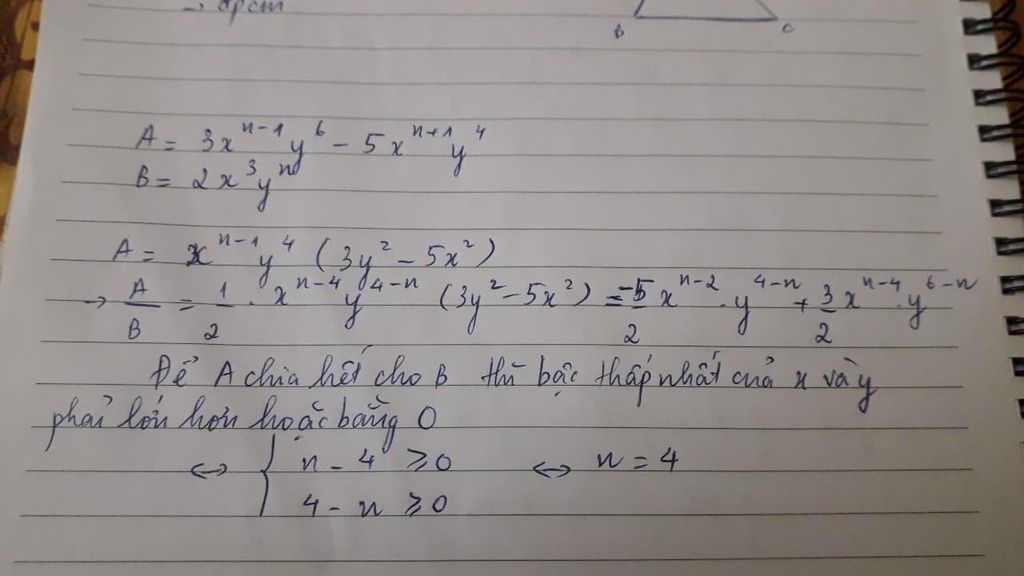 → đpcm
B C
A = 3x^{n-1}y^6 - 5x^{n+1}y^4
B = 2x^3y^n
A = x^{n-1}y^4 (3y^2 - 5x^2)
→ A/B = 1/2 . x^{n-4}y^{4-n} (3y^2 - 5x^2) = -5/2 x^{n-2} . y^{4-n} + 3/2 x^{n-4} . y^{6-n}
Để A chia hết cho B thì bậc thấp nhất của x và y
phải lớn hơn hoặc bằng 0
⇔ { n - 4 ≥ 0 ⇔ n = 4
4 - n ≥ 0